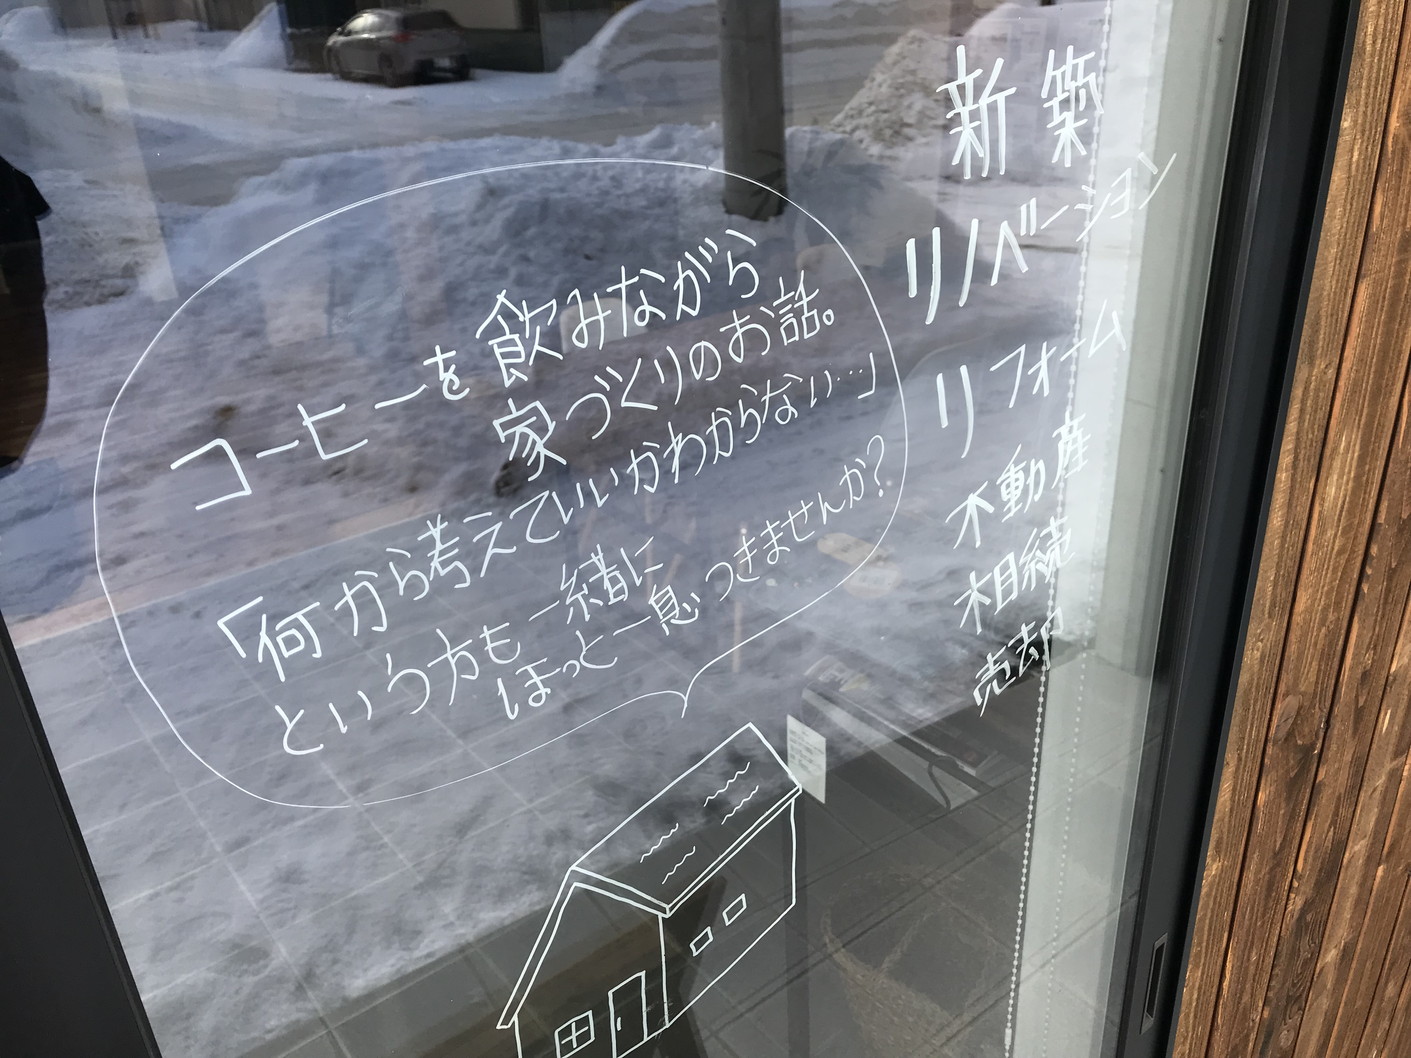 コーヒーを飲みながら
家づくりのお話。
「何から考えていいかわからない…」
という方も一緒に
ほっと一息つきませんか？
新築
リノベーション
リフォーム
不動産
相続
売却